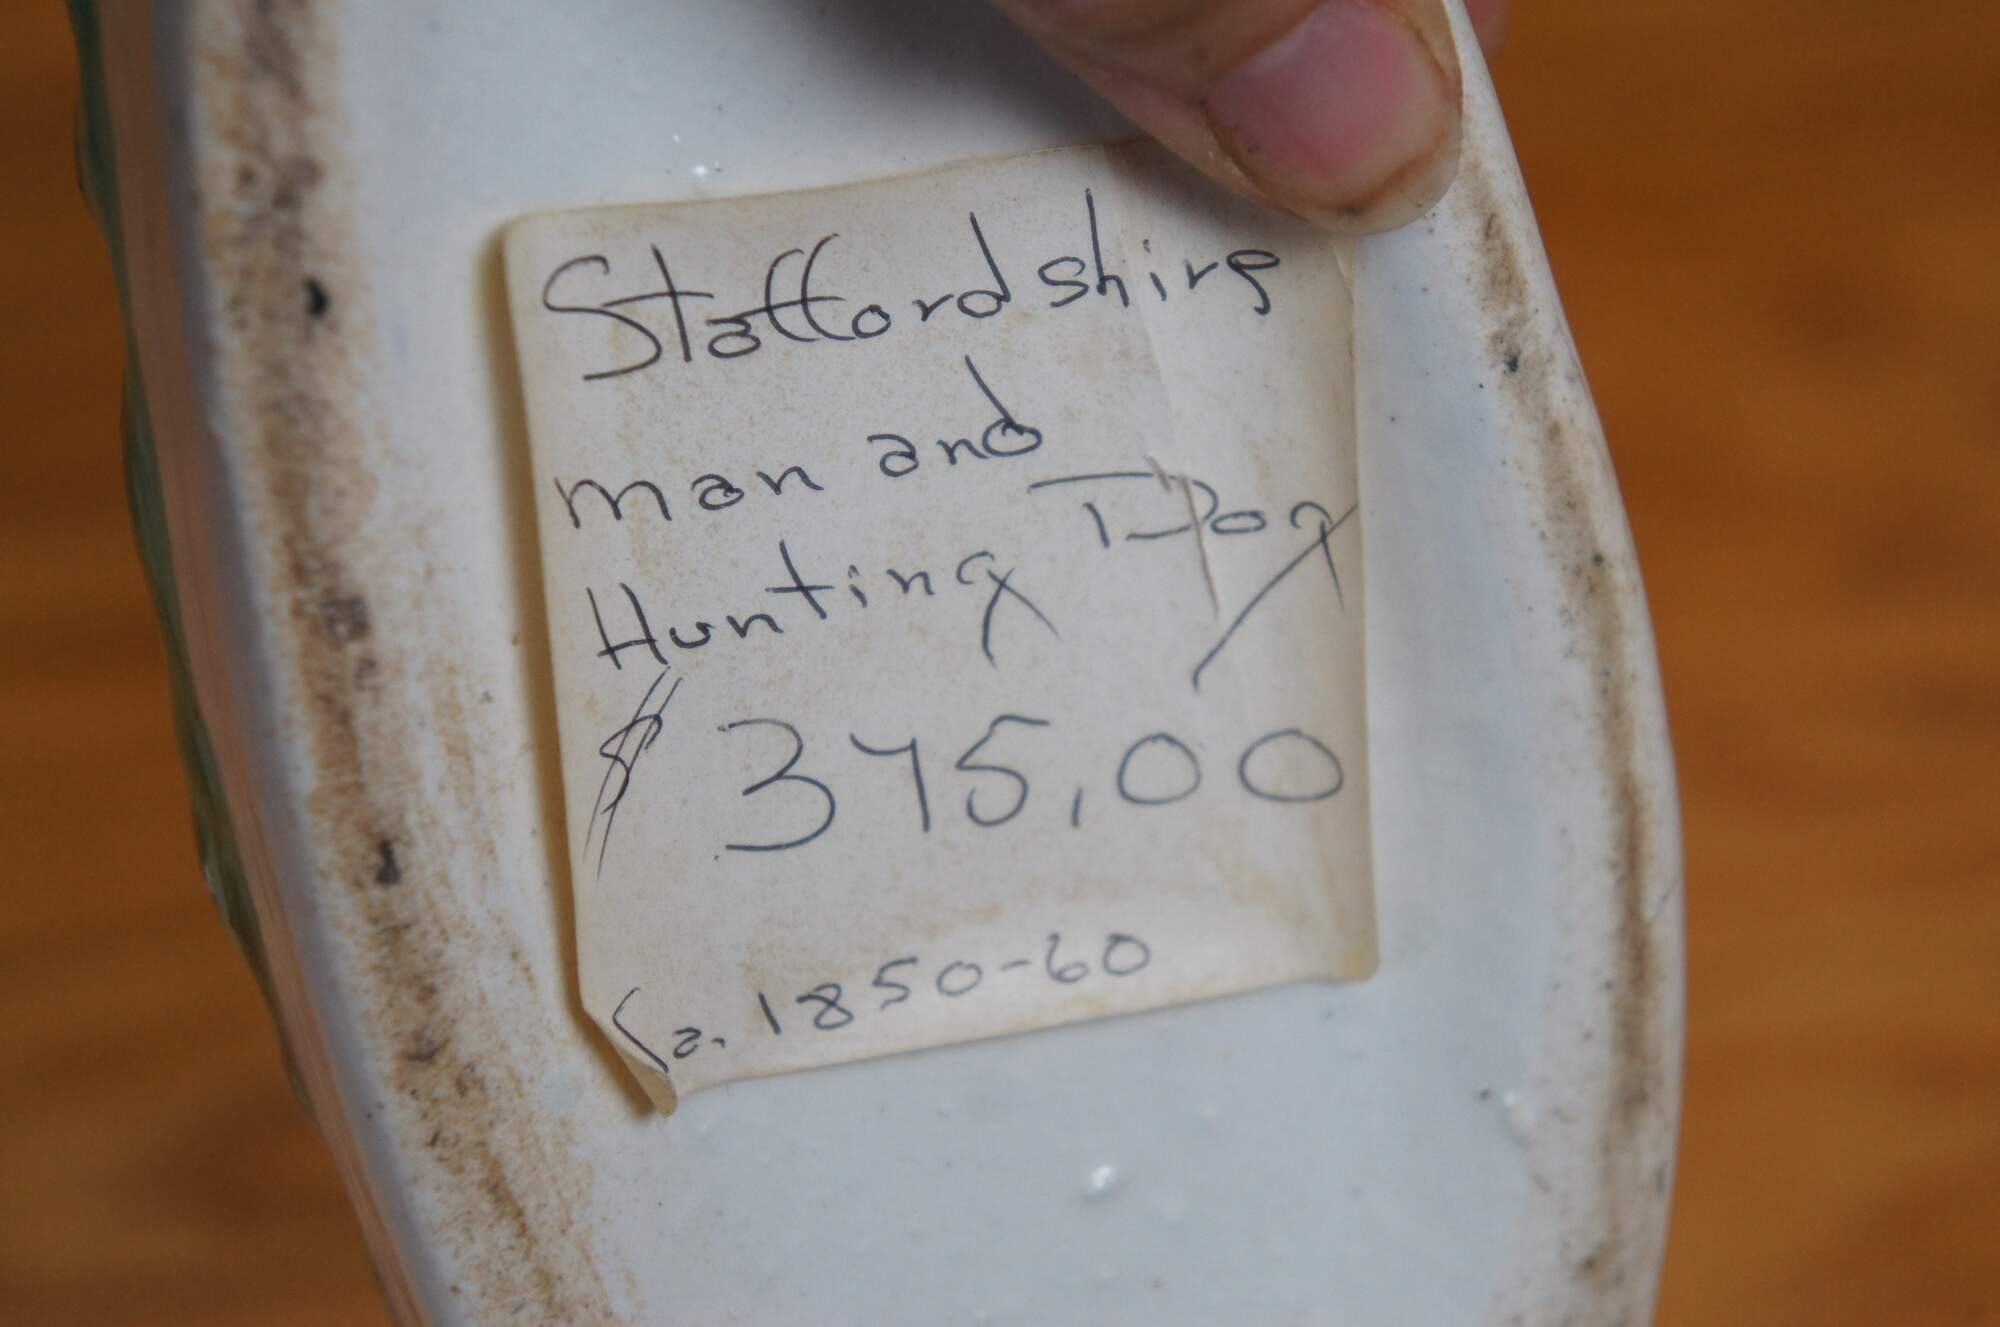 Staffordshire
man and
Hunting Dog
$ 345,00
Ca. 1850-60